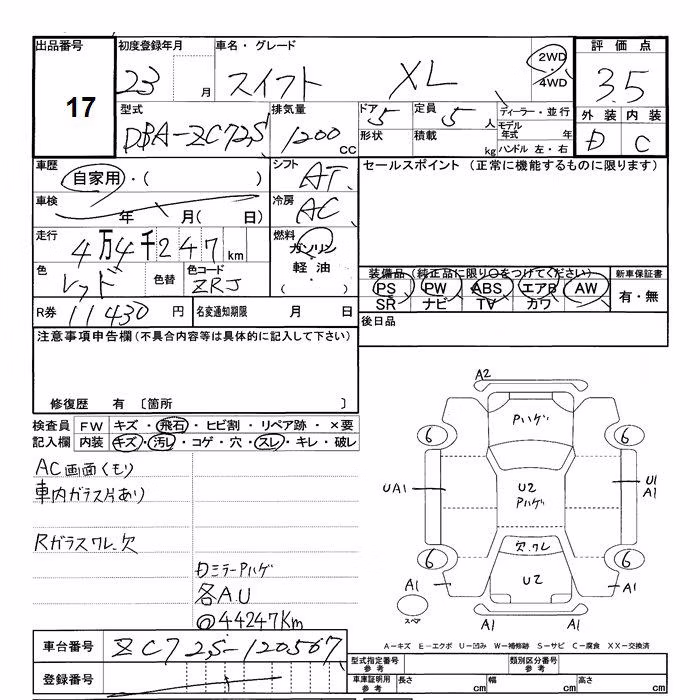 出品番号 初度登録年月 車名・グレード 評価点
17
23 月 スイフト XL 2WD・4WD 3.5
型式 排気量 ドア 5 定員 5 人 ディーラー・並行 外装 内装
DBA-ZC72S 1200 CC 形状 積載 kg モデル年式 年 D C
ハンドル 左・右
車歴 シフト セールスポイント (正常に機能するものに限ります)
自家用・( ) AT
車検 年 月( 日) 冷房 AC
走行 4万4千247 km 燃料 ガソリン
軽油・( )
色 レッド 色替 色コード ZRJ
装備品 (純正品に限り○をつけてください) 新車保証書
PS PW ABS エアB AW 有・無
SR ナビ TV カワ
R券 11430 円 名変通知期限 月 日 後日品
注意事項申告欄(不具合内容等は具体的に記入して下さい)
修復歴 有 〔箇所 〕
検査員 FW キズ・飛石・ヒビ割・リペア跡・×要
記入欄 内装 キズ・汚レ・コゲ・穴・スレ・キレ・破レ
AC画面くもり
車内ガラス片あり
Rガラスワレ、欠
Dミラー Pハゲ
各A.U
@44247Km
A2
Pハゲ
6 6
UA1 U2 U1
Pハゲ A1
欠.ワレ
6 6
A1 U2 A1
スペア A1 A1
A-キズ E-エクボ U-凹み W-補修跡 S-サビ C-腐食 XX-交換済
車台番号 ZC72S-120567
型式指定番号 参考 類別区分番号 参考
登録番号 車庫証明用 参考 長さ cm 幅 cm 高さ cm